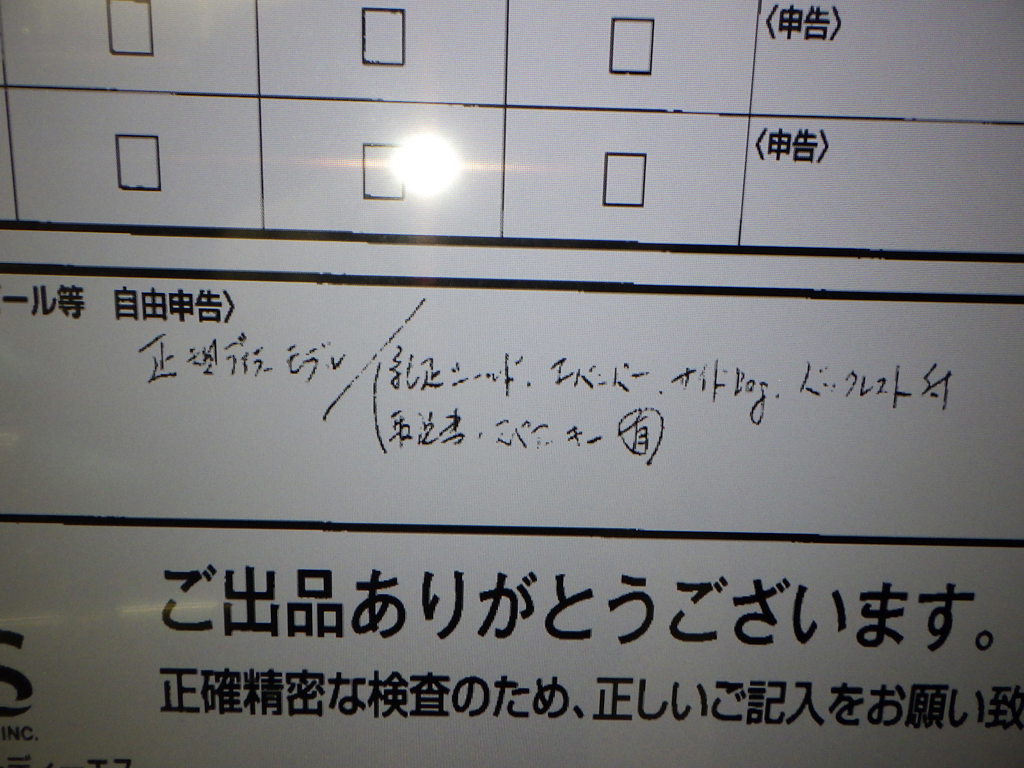 〈申告〉
〈申告〉
ール等 自由申告〉
正規ディーラーモデル／純正シールド、エバンパー、サイドBag、バックレスト付
取説書・スペアキー 有
ご出品ありがとうございます。
正確精密な検査のため、正しいご記入をお願い致
S
INC.
ディーエス